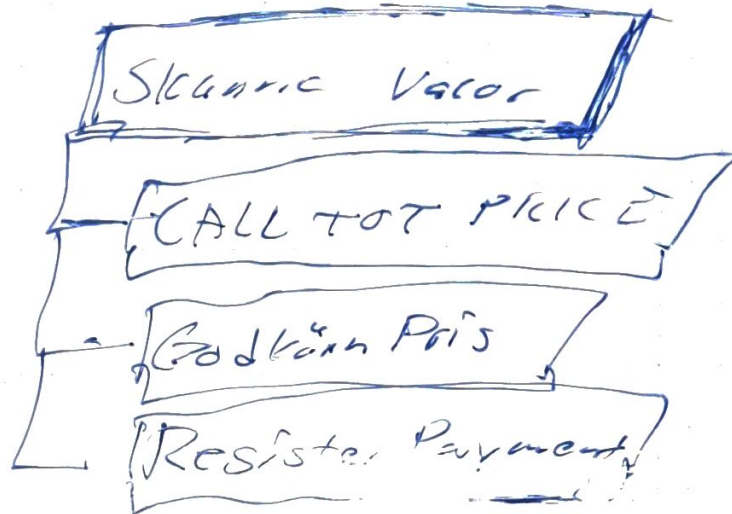 Skanna Varor
CALL TOT PRICE
Godkänn Pris
Register Payment